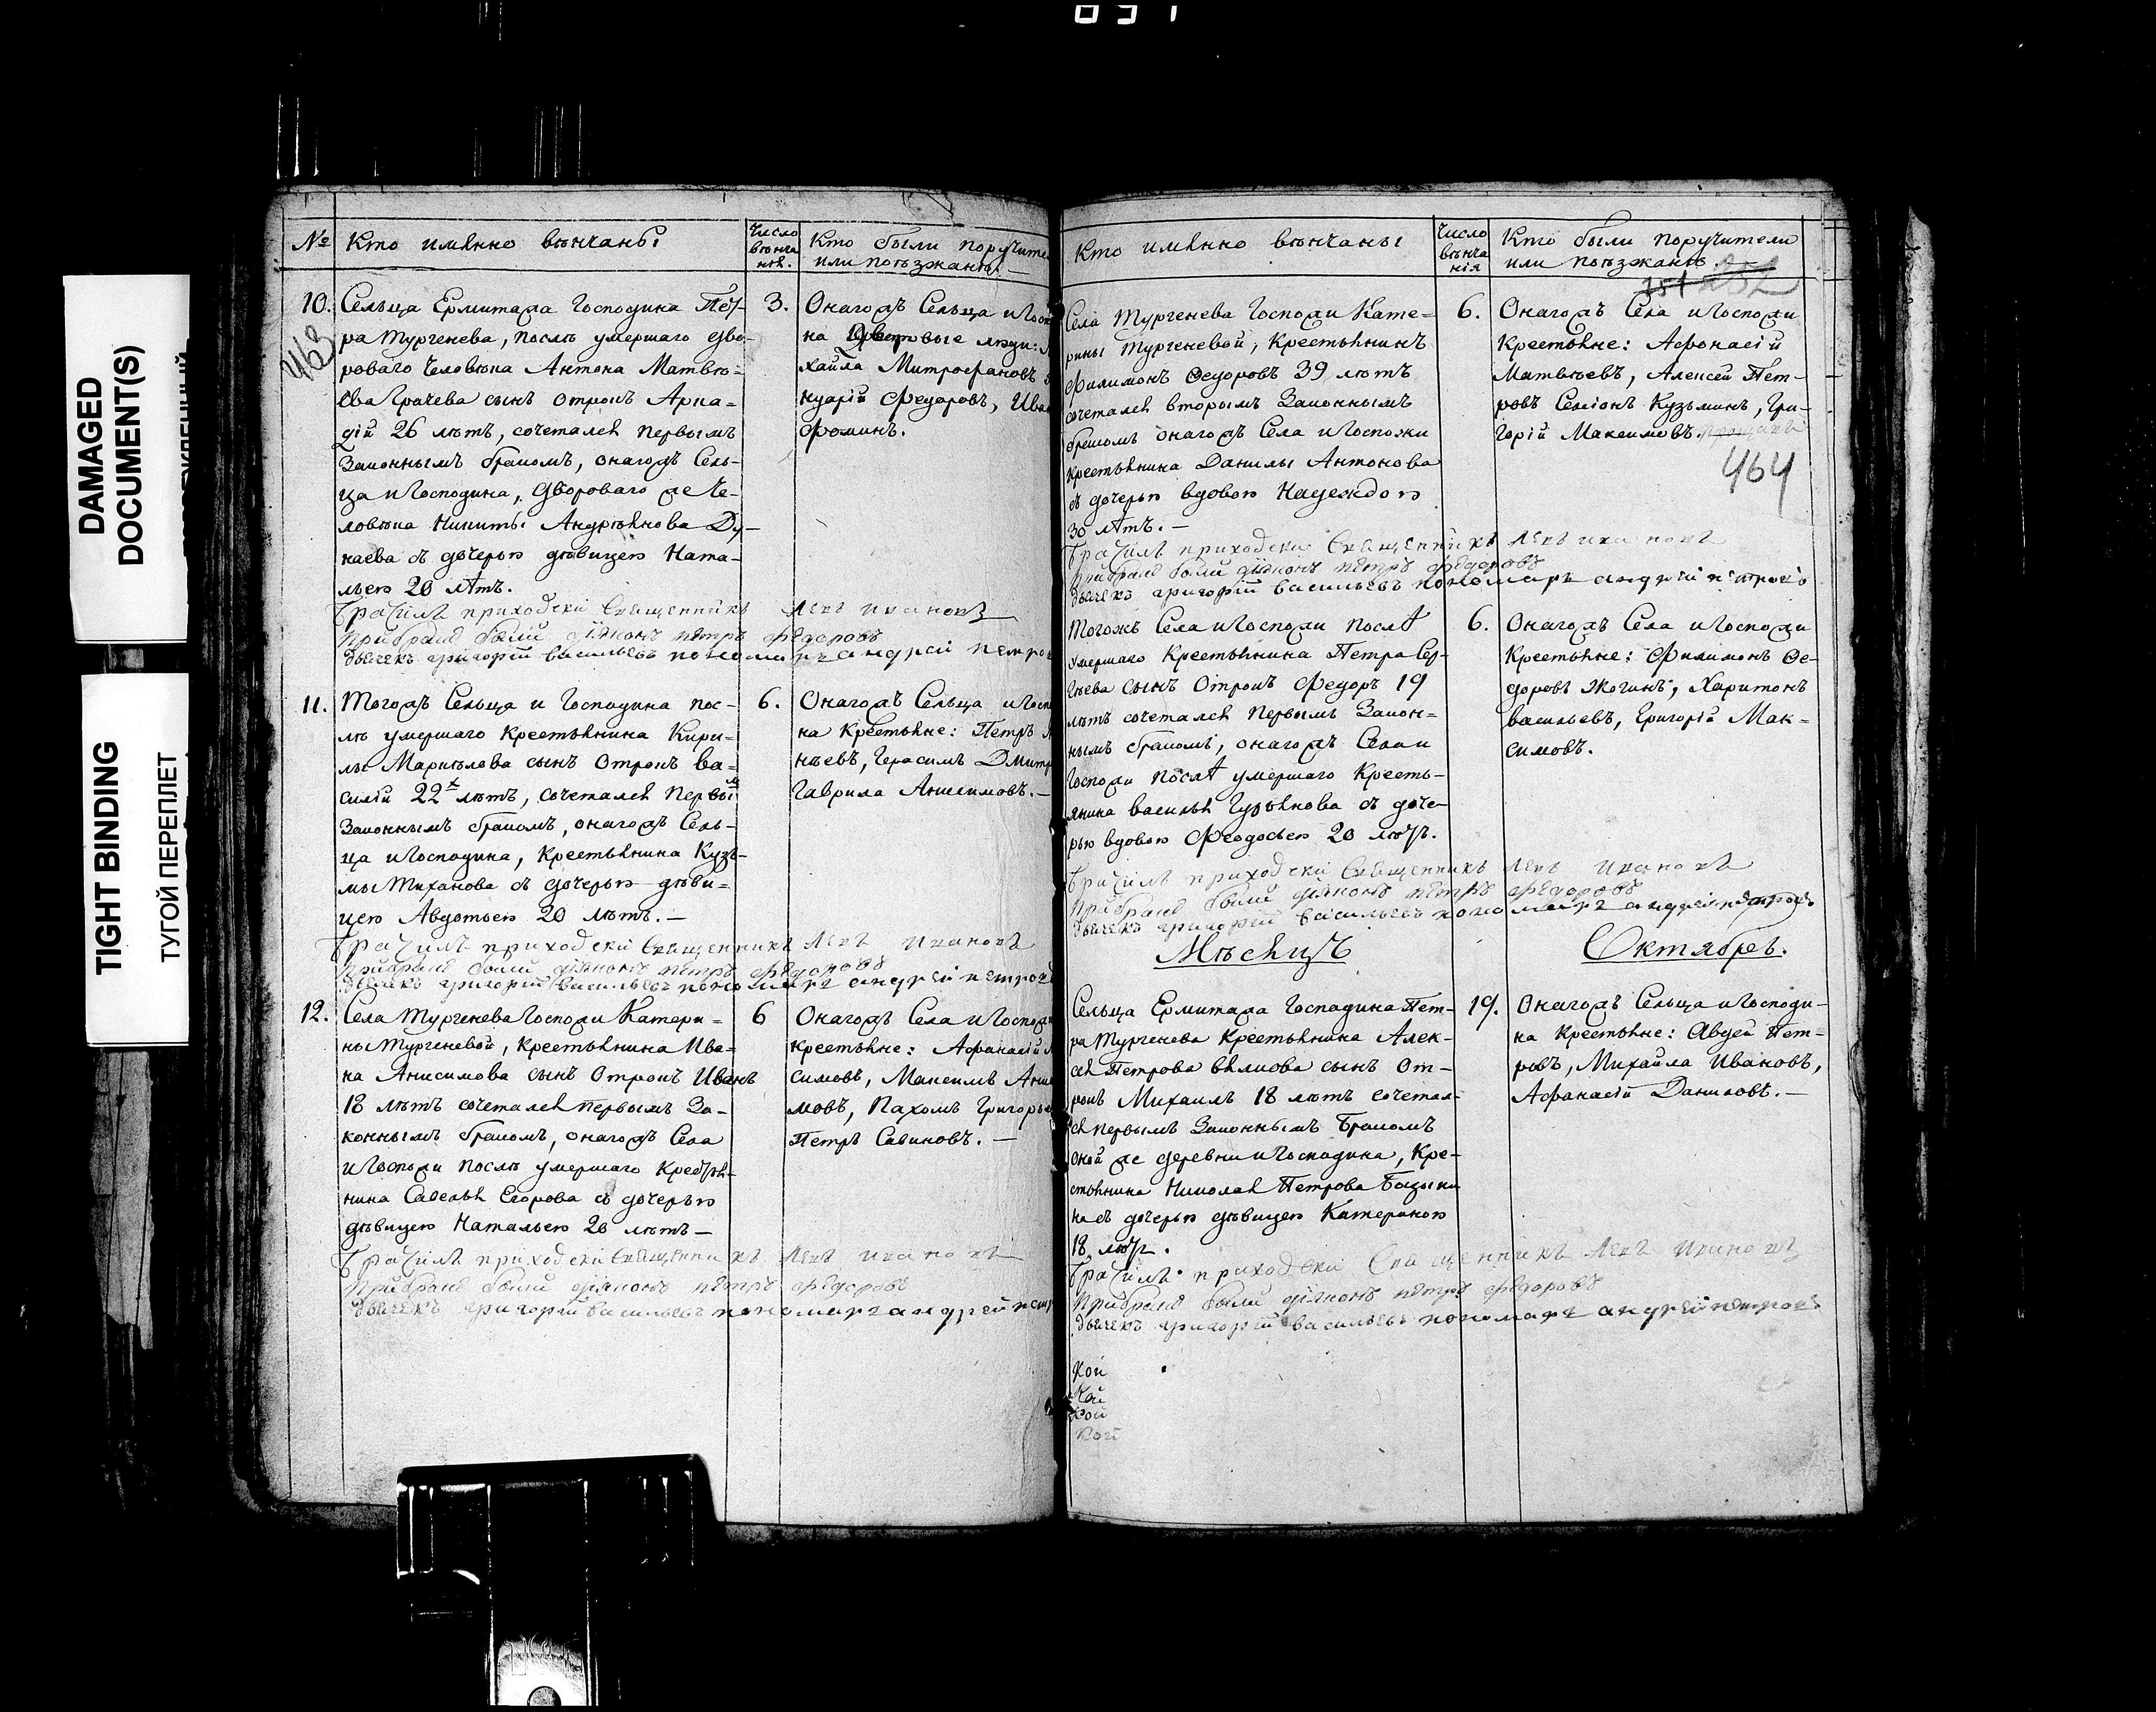 DAMAGED
DOCUMENT(S)
TIGHT BINDING
ТУГОЙ ПЕРЕПЛЕТ
№
Кто имянно вѣнчаны
Число
вѣнча
нія.
Кто были поручите
или поѣзжаня.
463
10.
Сельца Ермитажа Господина Пет-
ра Тургенева, послѣ умершаго дво-
роваго человѣка Антона Матвѣ-
ева Грачева сынъ отрокъ Арка-
дій 26 лѣтъ, сочетался первымъ
Законнымъ бракомъ, онагожъ Сель-
ца и Господина, Двороваго же Че-
ловѣка Никиты Андрѣянова Ду-
наева съ дочерью дѣвицею Ната-
льею 20 лѣтъ.
3.
Онагожъ Сельца и Госп
на Дворовые люди:
хайла Митрофановъ
нуарій Федоровъ, Иван
Фоминъ.
приходски Священникъ Левъ Ивановъ
были діяконъ петръ федоровъ
дьячекъ григорій васильевъ пономарь андрей петров
11.
Тогожъ Сельца и Господина пос-
лѣ умершаго Крестьянина Кири-
лы Маркѣлова сынъ отрокъ Ва-
силій 22х лѣтъ, сочетался первым
Законнымъ бракомъ, онагожъ Сель-
ца и Господина, Крестьянина Кузь-
мы Тиханова съ дочерью дѣви-
цею Авдотьею 20 лѣтъ.—
6.
Онагожъ Сельца и Госп
на Крестьяне: Петръ
нѣевъ, Герасимъ Дмитр
Гаврила Анисимовъ.—
приходски Священникъ Левъ Ивановъ
были діяконъ петръ федоровъ
дьячекъ григорій васильевъ пономарь андрей петров
12.
Села Тургенева Госпожи Катери-
ны Тургеневой, Крестьянина Ива-
на Анисимова сынъ Отрокъ Иванъ
18 лѣтъ сочетался первымъ За-
коннымъ бракомъ, онагожъ Села
и Госпожи послѣ умершаго Крестья-
нина Савелья Егорова съ дочерью
дѣвицею Натальею 20 лѣтъ—
6
Онагожъ Села и Госпож
крестьяне: Афанасій
симовъ, Максимъ Ани
мовъ, Пахомъ Григорье
Петръ Савиновъ.—
приходски Священникъ Левъ Ивановъ
были діяконъ петръ федоровъ
дьячекъ григорій васильевъ пономарь андрей петр
Кто имянно вѣнчаны
Число
вѣнча
нія
Кто были поручители
или поѣзжаня.
Села Тургенева Госпожи Кате-
рины Тургеневой, Крестьянинъ
Филимонъ Федоровъ 39 лѣтъ
сочетался вторымъ Законнымъ
бракомъ онагожъ Села и Госпожи
крестьянина Данилы Антонова
съ дочерью вдовою Надеждою
30 лѣтъ.—
6.
Онагожъ Села и Госпожи
Крестьяне: Афонасій
Матвѣевъ, Алексей Пет-
ровъ Семіонъ Кузьминъ, Гри-
горій Максимовъ.
464
приходски Священникъ Левъ Ивановъ
были діяконъ петръ федоровъ
дьячекъ григорій васильевъ пономарь андрей петровъ
Тогожъ Села и Госпожи послѣ
умершаго Крестьянина Петра Сер-
гѣева сынъ Отрокъ Федоръ 19
лѣтъ сочетался первымъ Закон-
нымъ бракомъ, онагожъ Села и
Госпожи послѣ умершаго Кресть-
янина Василья Гурьянова съ доче-
рью вдовою Феодосьею 20 лѣтъ.
6.
Онагожъ Села и Госпожи
Крестьяне: Филимонъ Фе-
доровъ Жогинъ, Харитонъ
Васильевъ, Григорій Мак-
симовъ.
приходски Священникъ Левъ Ивановъ
были діяконъ петръ федоровъ
дьячекъ григорій васильевъ пономарь андрей петровъ
Мѣсяцъ Октябрь.
Сельца Ермитажа Господина Пет-
ра Тургенева Крестьянина Алек-
сея Петрова Бѣлкова сынъ От-
рокъ Михаилъ 18 лѣтъ сочетал-
ся первымъ Законнымъ Бракомъ
оной же деревни и Господина, Кре-
стьянина Николая Петрова
на съ дочерью дѣвицею Катериною
18 лѣтъ.
19.
Онагожъ Сельца и Господи-
на Крестьяне: Авдей Пет-
ровъ, Михайла Ивановъ,
Афанасій Даниловъ.—
приходски Священникъ Левъ Ивановъ
были діяконъ петръ федоровъ
дьячекъ григорій васильевъ пономарь андрей петровъ
кой
кой
кой
кой